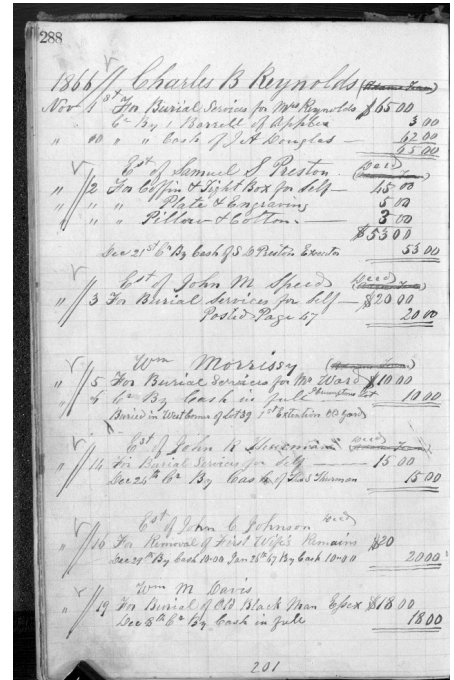 288
1866 Charles B Reynolds
Nov 1st For Burial Services for Mrs Reynolds $65 00
Cr By 1 Barrell of Apples 3 00
" " " Cash of J A Douglas 62 00
65 00
Est of Samuel S Preston Decd
" 2 For Coffin & Tight Box for Self 45 00
" " " Plate & Engraving 5 00
" " " Pillow & Cotton 3 00
$53 00
Dec 21st Cr By Cash of S D Preston Executor 53 00
Est of John M Speed Decd
" 3 For Burial Services for Self $20 00
Posted Page 47 20 00
Wm Morrissy
" 5 For Burial Services for Mr Ward $10.00
" 6 Cr By Cash in full 10 00
Buried in West Corner of Lot 39 1st Extention Old Yard
Est of John R Decd
" 14 For Burial Services for Self 15 00
Dec 24th Cr By Cash of Thurman 15 00
Est of John C Johnson Decd
" 16 For Removal of First Wife's Remains $20
By Cash 10.00 Jan 26th 67 By Cash 10.00 20 00
Wm M Davis
" 19 For Burial of Old Black Man Essex $18 00
Dec 8th Cr By Cash in full 18 00
201